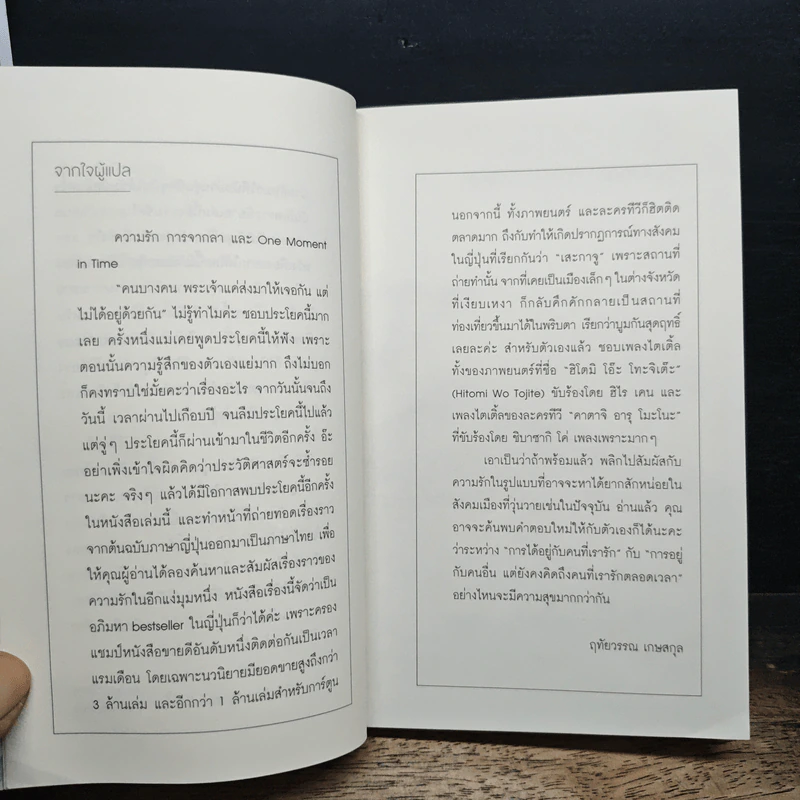 จากใจผู้แปล
ความรัก การจากลา และ One Moment
in Time
"คนบางคน พระเจ้าแค่ส่งมาให้เจอกัน แต่
ไม่ได้อยู่ด้วยกัน" ไม่รู้ทำไมค่ะ ชอบประโยคนี้มาก
เลย ครั้งหนึ่งแม่เคยพูดประโยคนี้ให้ฟัง เพราะ
ตอนนั้นความรู้สึกของตัวเองแย่มาก ถึงไม่บอก
ก็คงทราบใช่มั้ยคะว่าเรื่องอะไร จากวันนั้นจนถึง
วันนี้ เวลาผ่านไปเกือบปี จนลืมประโยคนี้ไปแล้ว
แต่จู่ๆ ประโยคนี้ก็ผ่านเข้ามาในชีวิตอีกครั้ง อ๊ะ
อย่าเพิ่งเข้าใจผิดคิดว่าประวัติศาสตร์จะซ้ำรอย
นะคะ จริงๆ แล้วได้มีโอกาสพบประโยคนี้อีกครั้ง
ในหนังสือเล่มนี้ และทำหน้าที่ถ่ายทอดเรื่องราว
จากต้นฉบับภาษาญี่ปุ่นออกมาเป็นภาษาไทย เพื่อ
ให้คุณผู้อ่านได้ลองค้นหาและสัมผัสเรื่องราวของ
ความรักในอีกแง่มุมหนึ่ง หนังสือเรื่องนี้จัดว่าเป็น
อภิมหา bestseller ในญี่ปุ่นก็ว่าได้ค่ะ เพราะครอง
แชมป์หนังสือขายดีอันดับหนึ่งติดต่อกันเป็นเวลา
แรมเดือน โดยเฉพาะนวนิยายมียอดขายสูงถึงกว่า
3 ล้านเล่ม และอีกกว่า 1 ล้านเล่มสำหรับการ์ตูน
นอกจากนี้ ทั้งภาพยนตร์ และละครทีวีก็ฮิตติด
ตลาดมาก ถึงกับทำให้เกิดปรากฏการณ์ทางสังคม
ในญี่ปุ่นที่เรียกกันว่า "เสะกาจู" เพราะสถานที่
ถ่ายทำนั้น จากที่เคยเป็นเมืองเล็กๆ ในต่างจังหวัด
ที่เงียบเหงา ก็กลับคึกคักกลายเป็นสถานที่
ท่องเที่ยวขึ้นมาได้ในพริบตา เรียกว่าบูมกันสุดฤทธิ์
เลยละค่ะ สำหรับตัวเองแล้ว ชอบเพลงไตเติ้ล
ทั้งของภาพยนตร์ที่ชื่อ "ฮิโตมิ โอ๊ะ โทะจิเต๊ะ"
(Hitomi Wo Tojite) ขับร้องโดย ฮิไร เคน และ
เพลงไตเติ้ลของละครทีวี "คาตาจิ อารุ โมะโนะ"
ที่ขับร้องโดย ชิบาซากิ โค่ เพลงเพราะมากๆ
เอาเป็นว่าถ้าพร้อมแล้ว พลิกไปสัมผัสกับ
ความรักในรูปแบบที่อาจจะหาได้ยากสักหน่อยใน
สังคมเมืองที่วุ่นวายเช่นในปัจจุบัน อ่านแล้ว คุณ
อาจจะค้นพบคำตอบใหม่ให้กับตัวเองก็ได้นะคะ
ว่าระหว่าง "การได้อยู่กับคนที่เรารัก" กับ "การอยู่
กับคนอื่น แต่ยังคงคิดถึงคนที่เรารักตลอดเวลา"
อย่างไหนจะมีความสุขมากกว่ากัน
ฤทัยวรรณ เกษสกุล